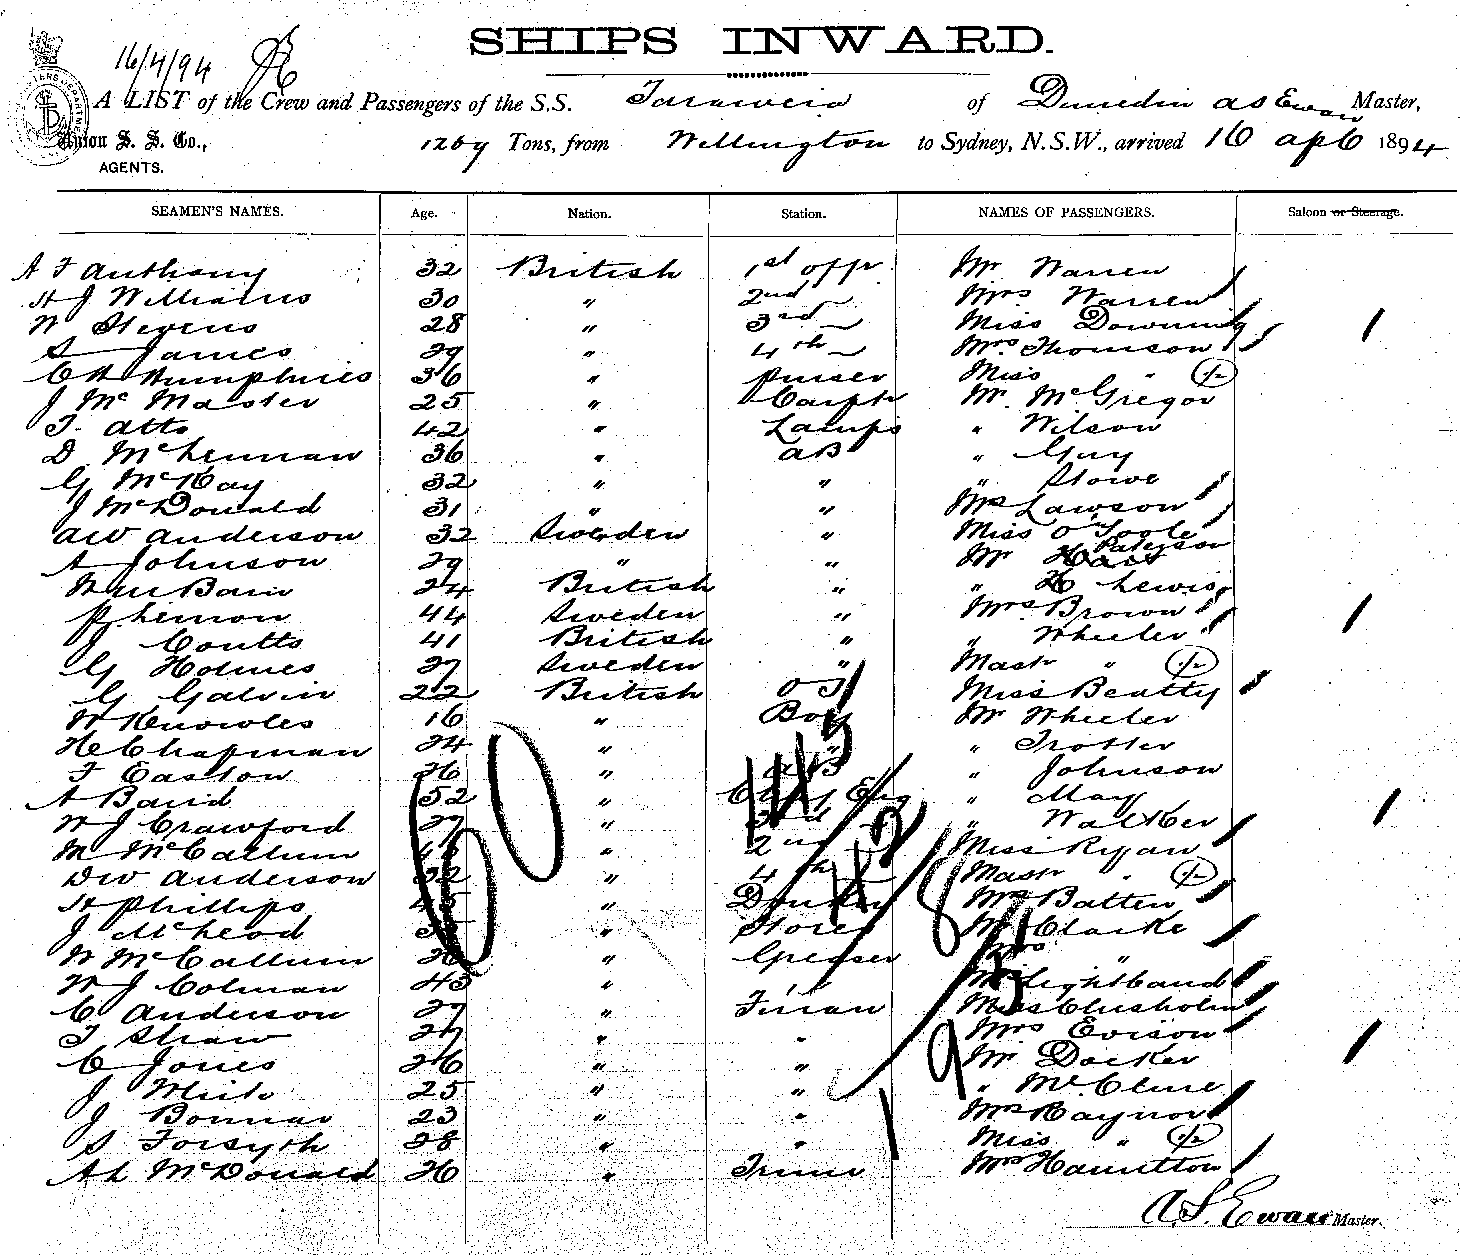 SHIPS INWARD.
16/4/94
A LIST of the Crew and Passengers of the S.S. Tarawera of Dunedin A S Ewan Master,
Union S. S. Co., 1269 Tons, from Wellington to Sydney, N.S.W., arrived 16 Apl 1894
AGENTS.
SEAMEN'S NAMES. Age. Nation. Station. NAMES OF PASSENGERS. Saloon or Steerage.
A F Anthony 32 British 1st offr Mr Warren
H J Williams 30 " 2nd Mrs Warren
W Stevens 28 " 3rd Miss Downing
S James 29 " 4th Mrs Thomson
C H Humphries 36 " Purser Miss " 1/2
J McMaster 25 " Carptr Mr McGregor
T. Atto 42 " Lamps " Wilson
D McLennan 36 " AB " Guy
G McKay 32 " " " Stowe
J McDonald 31 " " Mrs Lawson
AW Anderson 32 Sweden " Miss O'Toole
A Johnson 29 " " Mr Paterson
Wm Bain 24 British " " H Lewis
P Lennon 44 Sweden " Mrs Brown
J Coutts 41 British " " Wheeler
G Holmes 27 Sweden " Mastr " 1/2
G Galvin 22 British OS Miss Beatty
W Knowles 16 " Boy Mr Wheeler
HC Chapman 24 " " " Trotter
F Easton 26 " " Johnson
A Baird 52 " Chief Eng " May
W J Crawford 27 " " Walker
M McCallum " 2nd Miss Ryan
DW Anderson 32 " 4th Mastr " 1/2
H Phillips 45 " Donkey Mrs Batten
J McLeod " Stores Mr Clarke
W McCallum 26 " Greaser Mrs "
W J Colman 43 " " Lightband
C Anderson 27 " Firman Miss Chisholm
T Shaw 27 " " Mrs Evison
C Jones 26 " " Mr Docker
J Muir 25 " " " McClure
J Bonnar 23 " " Mrs Raynor
S Forsyth 28 " " Miss " 1/2
A L McDonald 26 " Trimr Mrs Hamilton
60
143
42
A.S. Ewan Master.